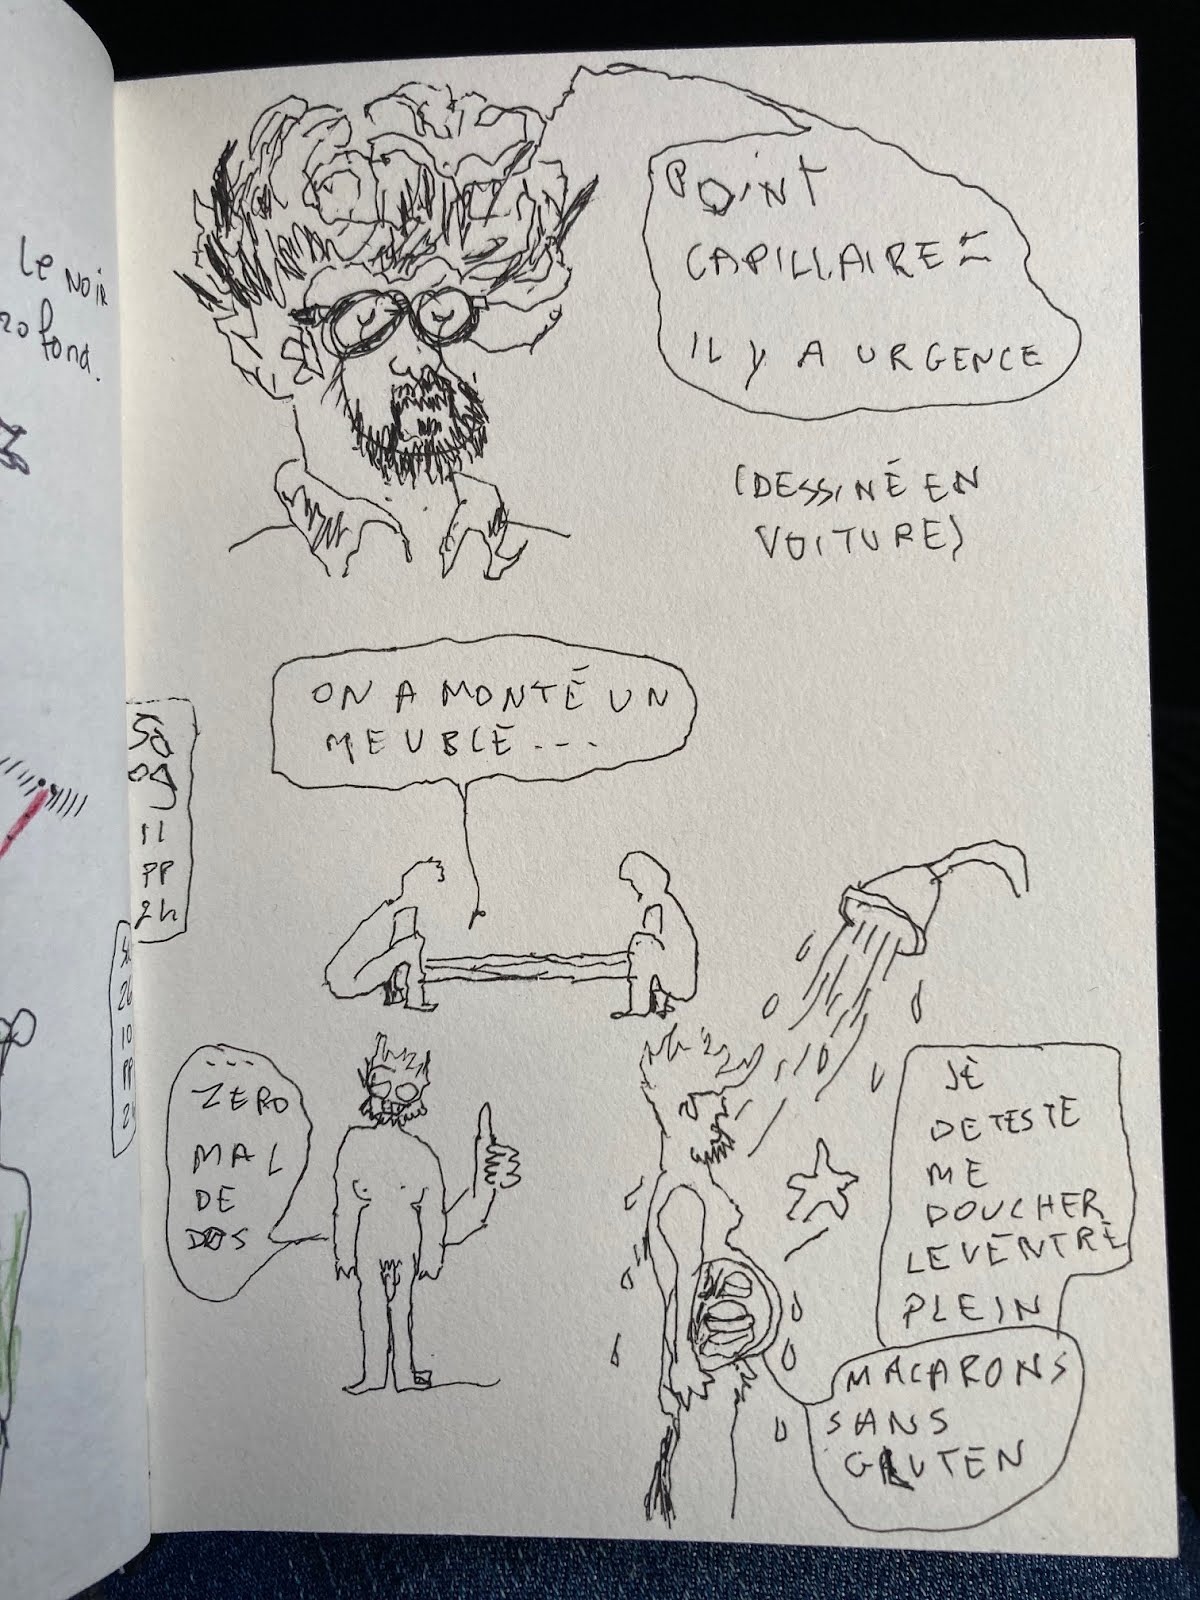 Le noir
fond.
POINT
CAPILLAIRE =
IL Y A URGENCE
(DESSINÉ EN
VOITURE)
ON A MONTÉ UN
MEUBLE...
11
PP
2h
26
10
PP
---
ZERO
MAL
DE
DOS
JE
DETESTE
ME
DOUCHER
LE VENTRE
PLEIN
MACARONS
SANS
GLUTEN